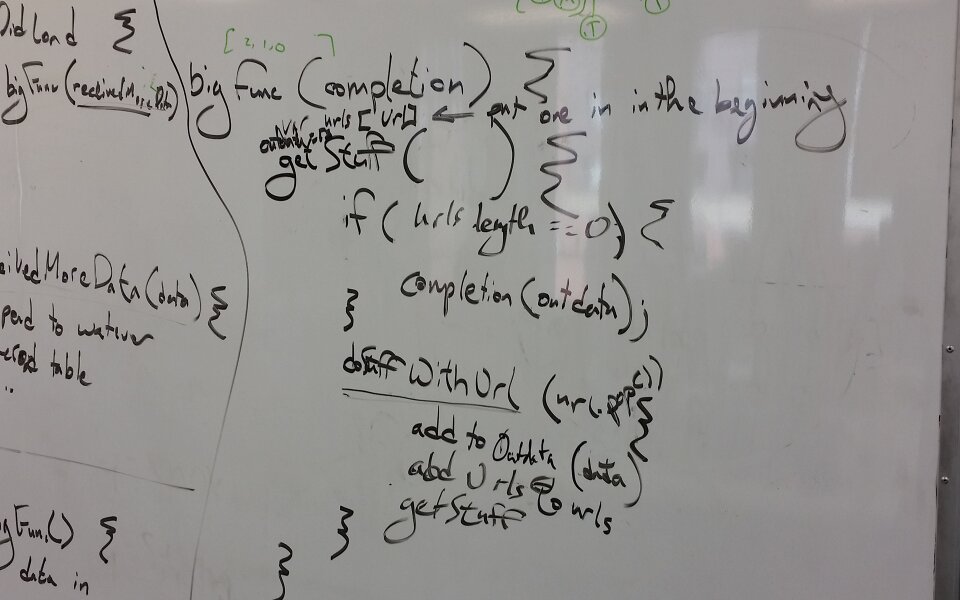 DidLoad {
bigFunc(receivedMoreData)
eivedMoreData(data) {
pend to watever
table
gFunc() {
data in
[2,1,0]
bigFunc (completion) {
var urls [Url] ← put one in in the beginning
getStuff ( ) {
if (urls length == 0) {
completion(outdata);
}
doStuff WithUrl (url.pop()) {
add to Outdata (data)
add Urls to urls
getStuff
}
}